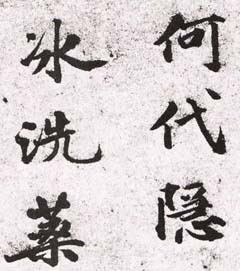 何代隱
冰洗藥